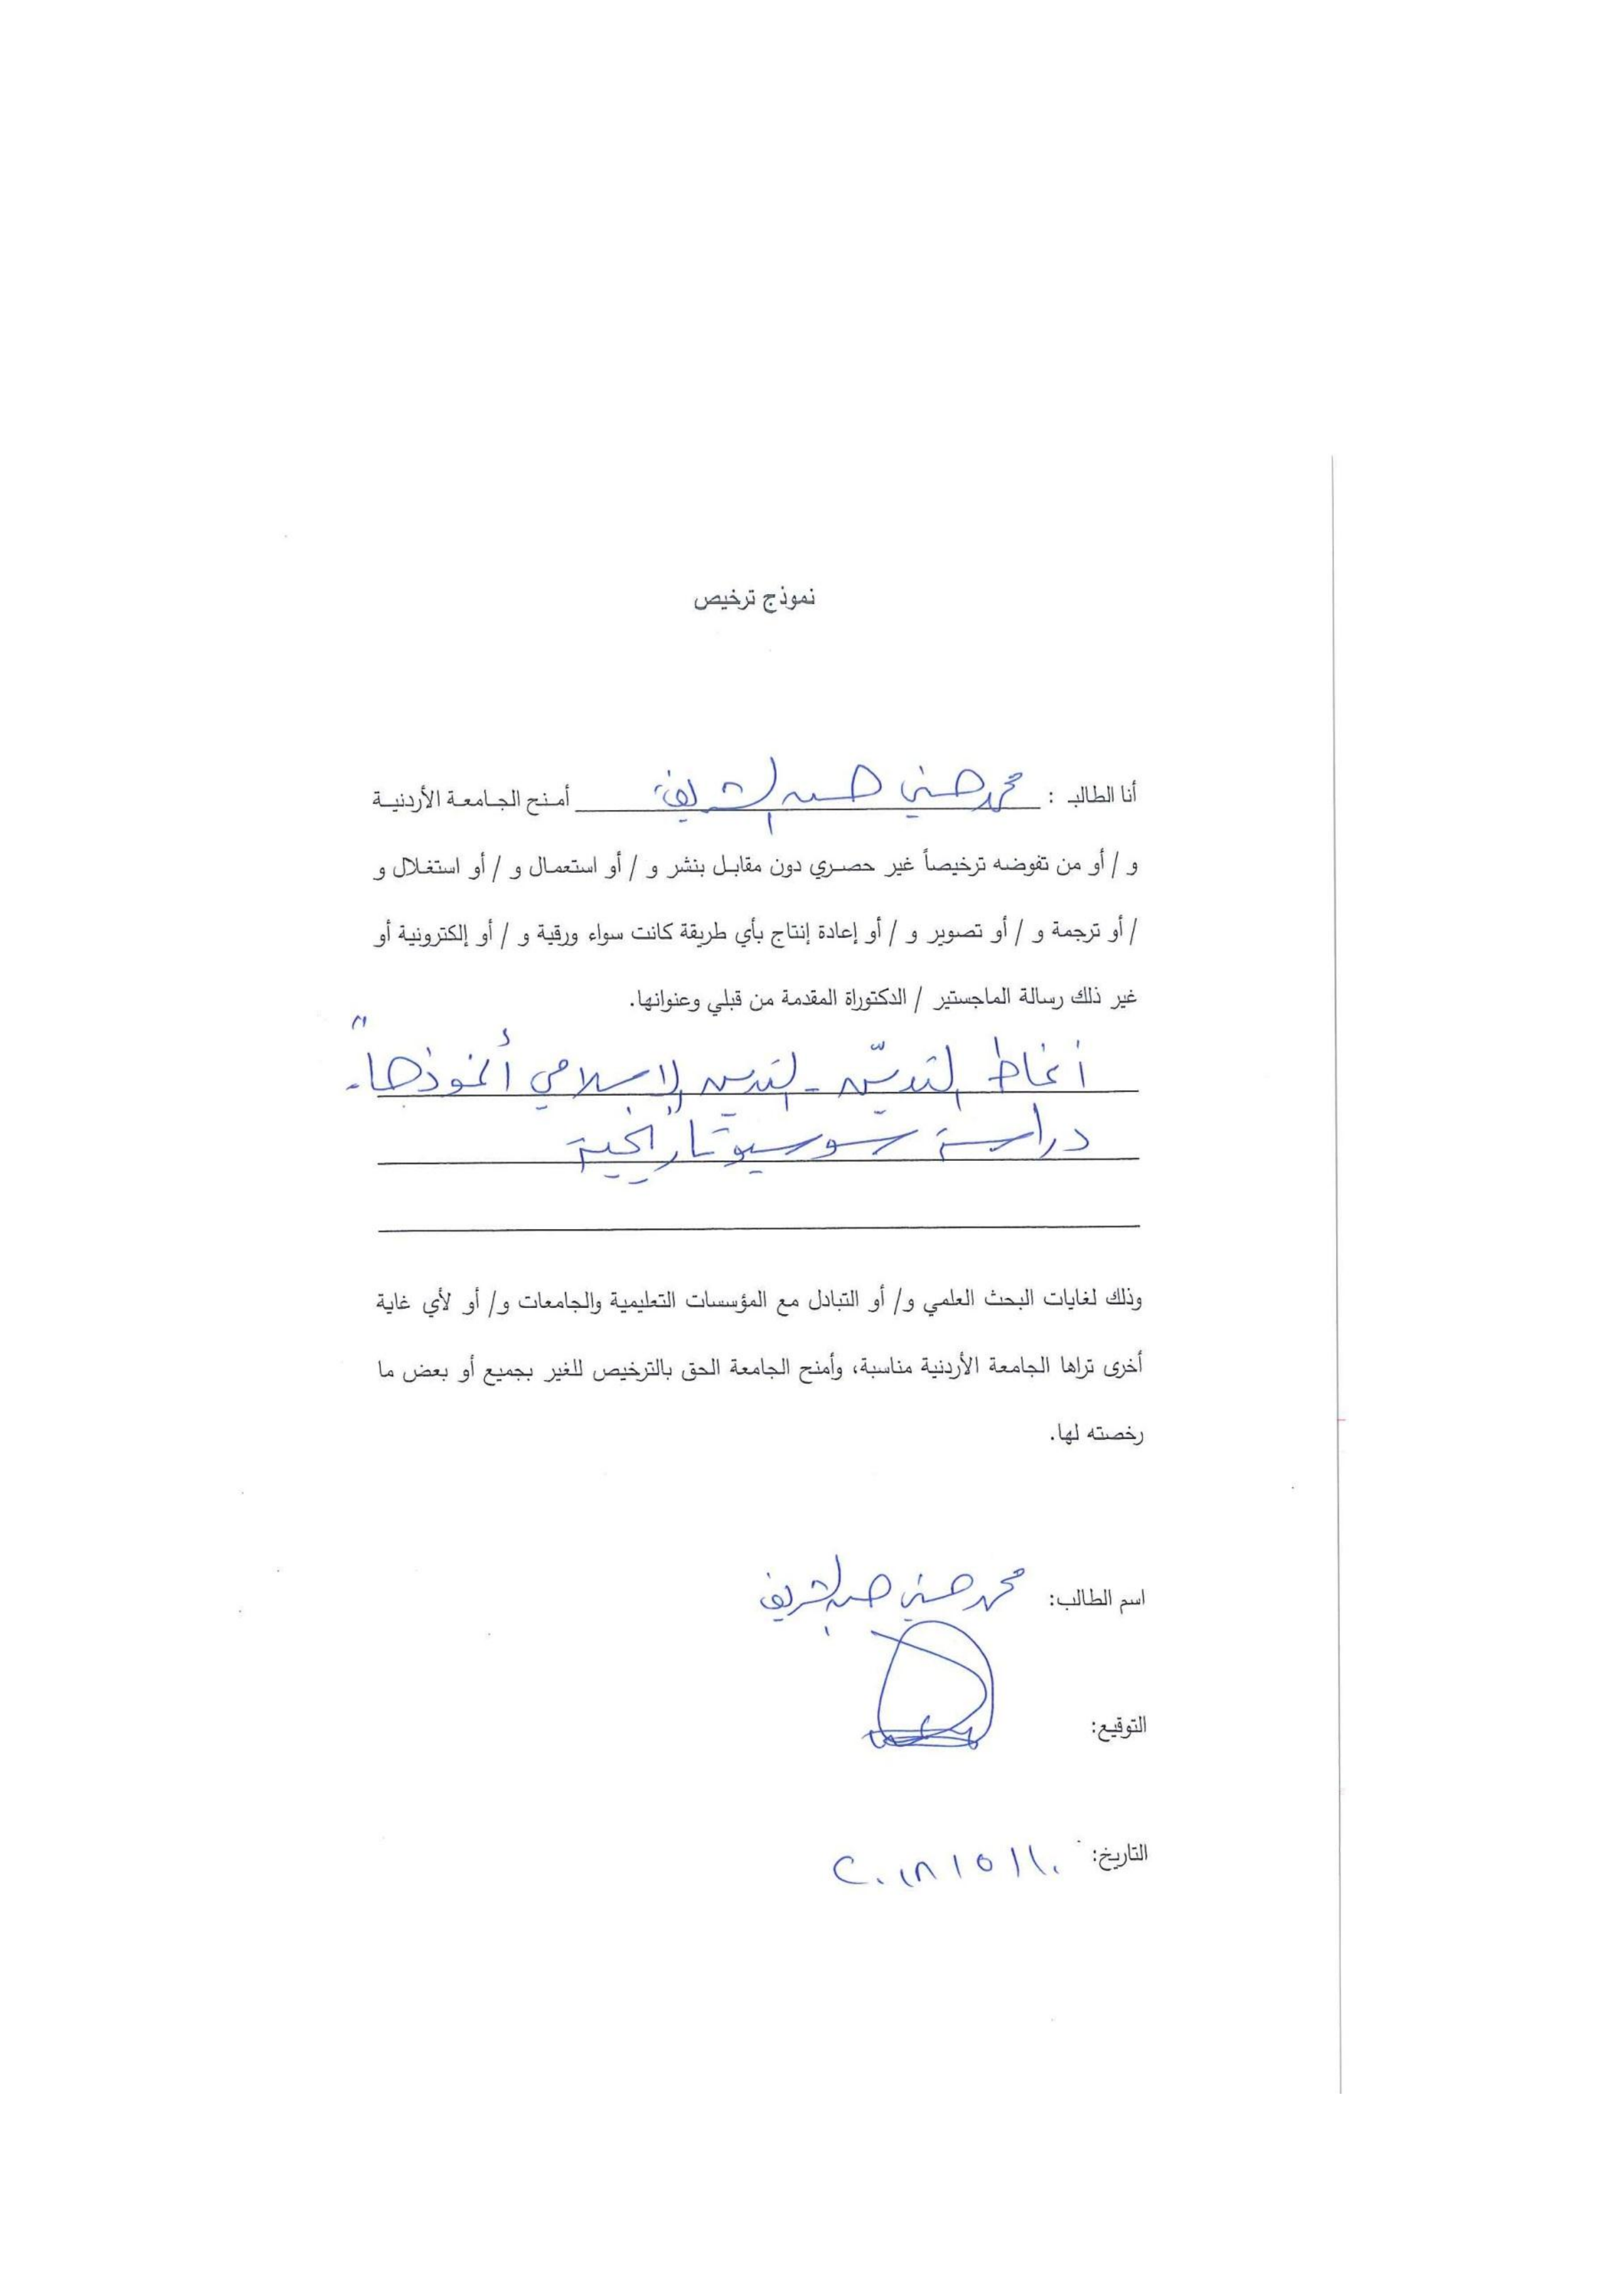 نموذج ترخيص
أنا الطالب : محمد حسني حسن الشريف أمنح الجامعة الأردنية
و / أو من تفوضه ترخيصاً غير حصري دون مقابل بنشر و / أو استعمال و / أو استغلال و
/ أو ترجمة و / أو تصوير و / أو إعادة إنتاج بأي طريقة كانت سواء ورقية و / أو إلكترونية أو
غير ذلك رسالة الماجستير / الدكتوراة المقدمة من قبلي وعنوانها.
أنماط التديّن - التدين الإسلامي أنموذجاً -"
دراسة سوسيوتاريخية
وذلك لغايات البحث العلمي و/ أو التبادل مع المؤسسات التعليمية والجامعات و/ أو لأي غاية
أخرى تراها الجامعة الأردنية مناسبة، وأمنح الجامعة الحق بالترخيص للغير بجميع أو بعض ما
رخصته لها.
اسم الطالب: محمد حسني حسن الشريف
التوقيع:
التاريخ: ١٠/٥/٢٠١٨